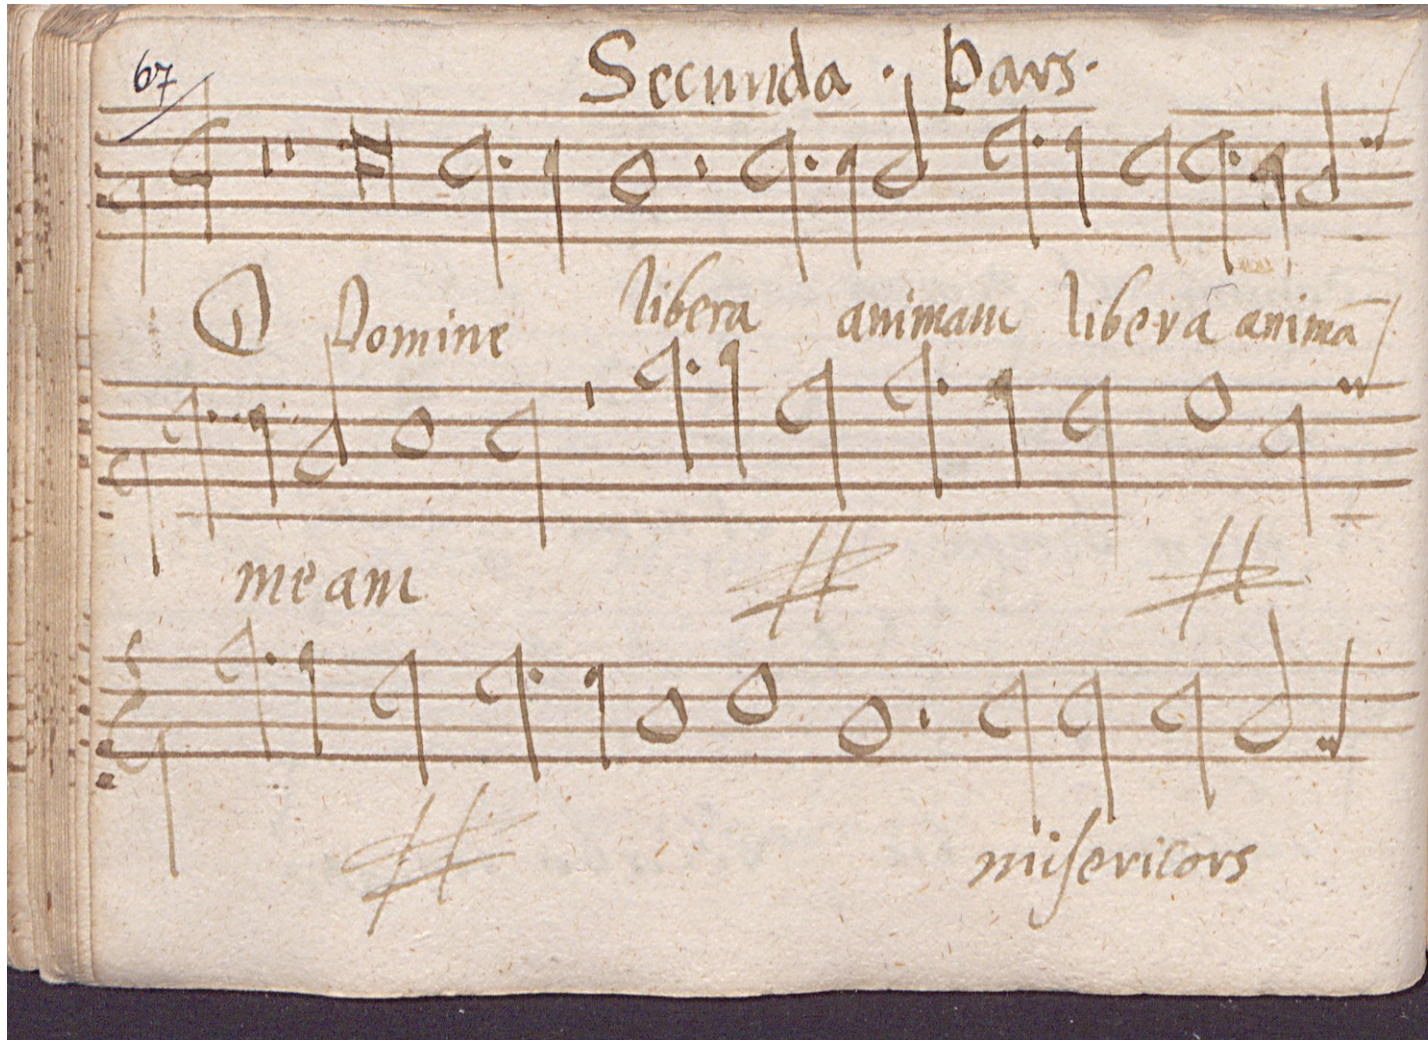 67
Secunda · Pars ·
O Domine libera animam libera animā
meam
misericors